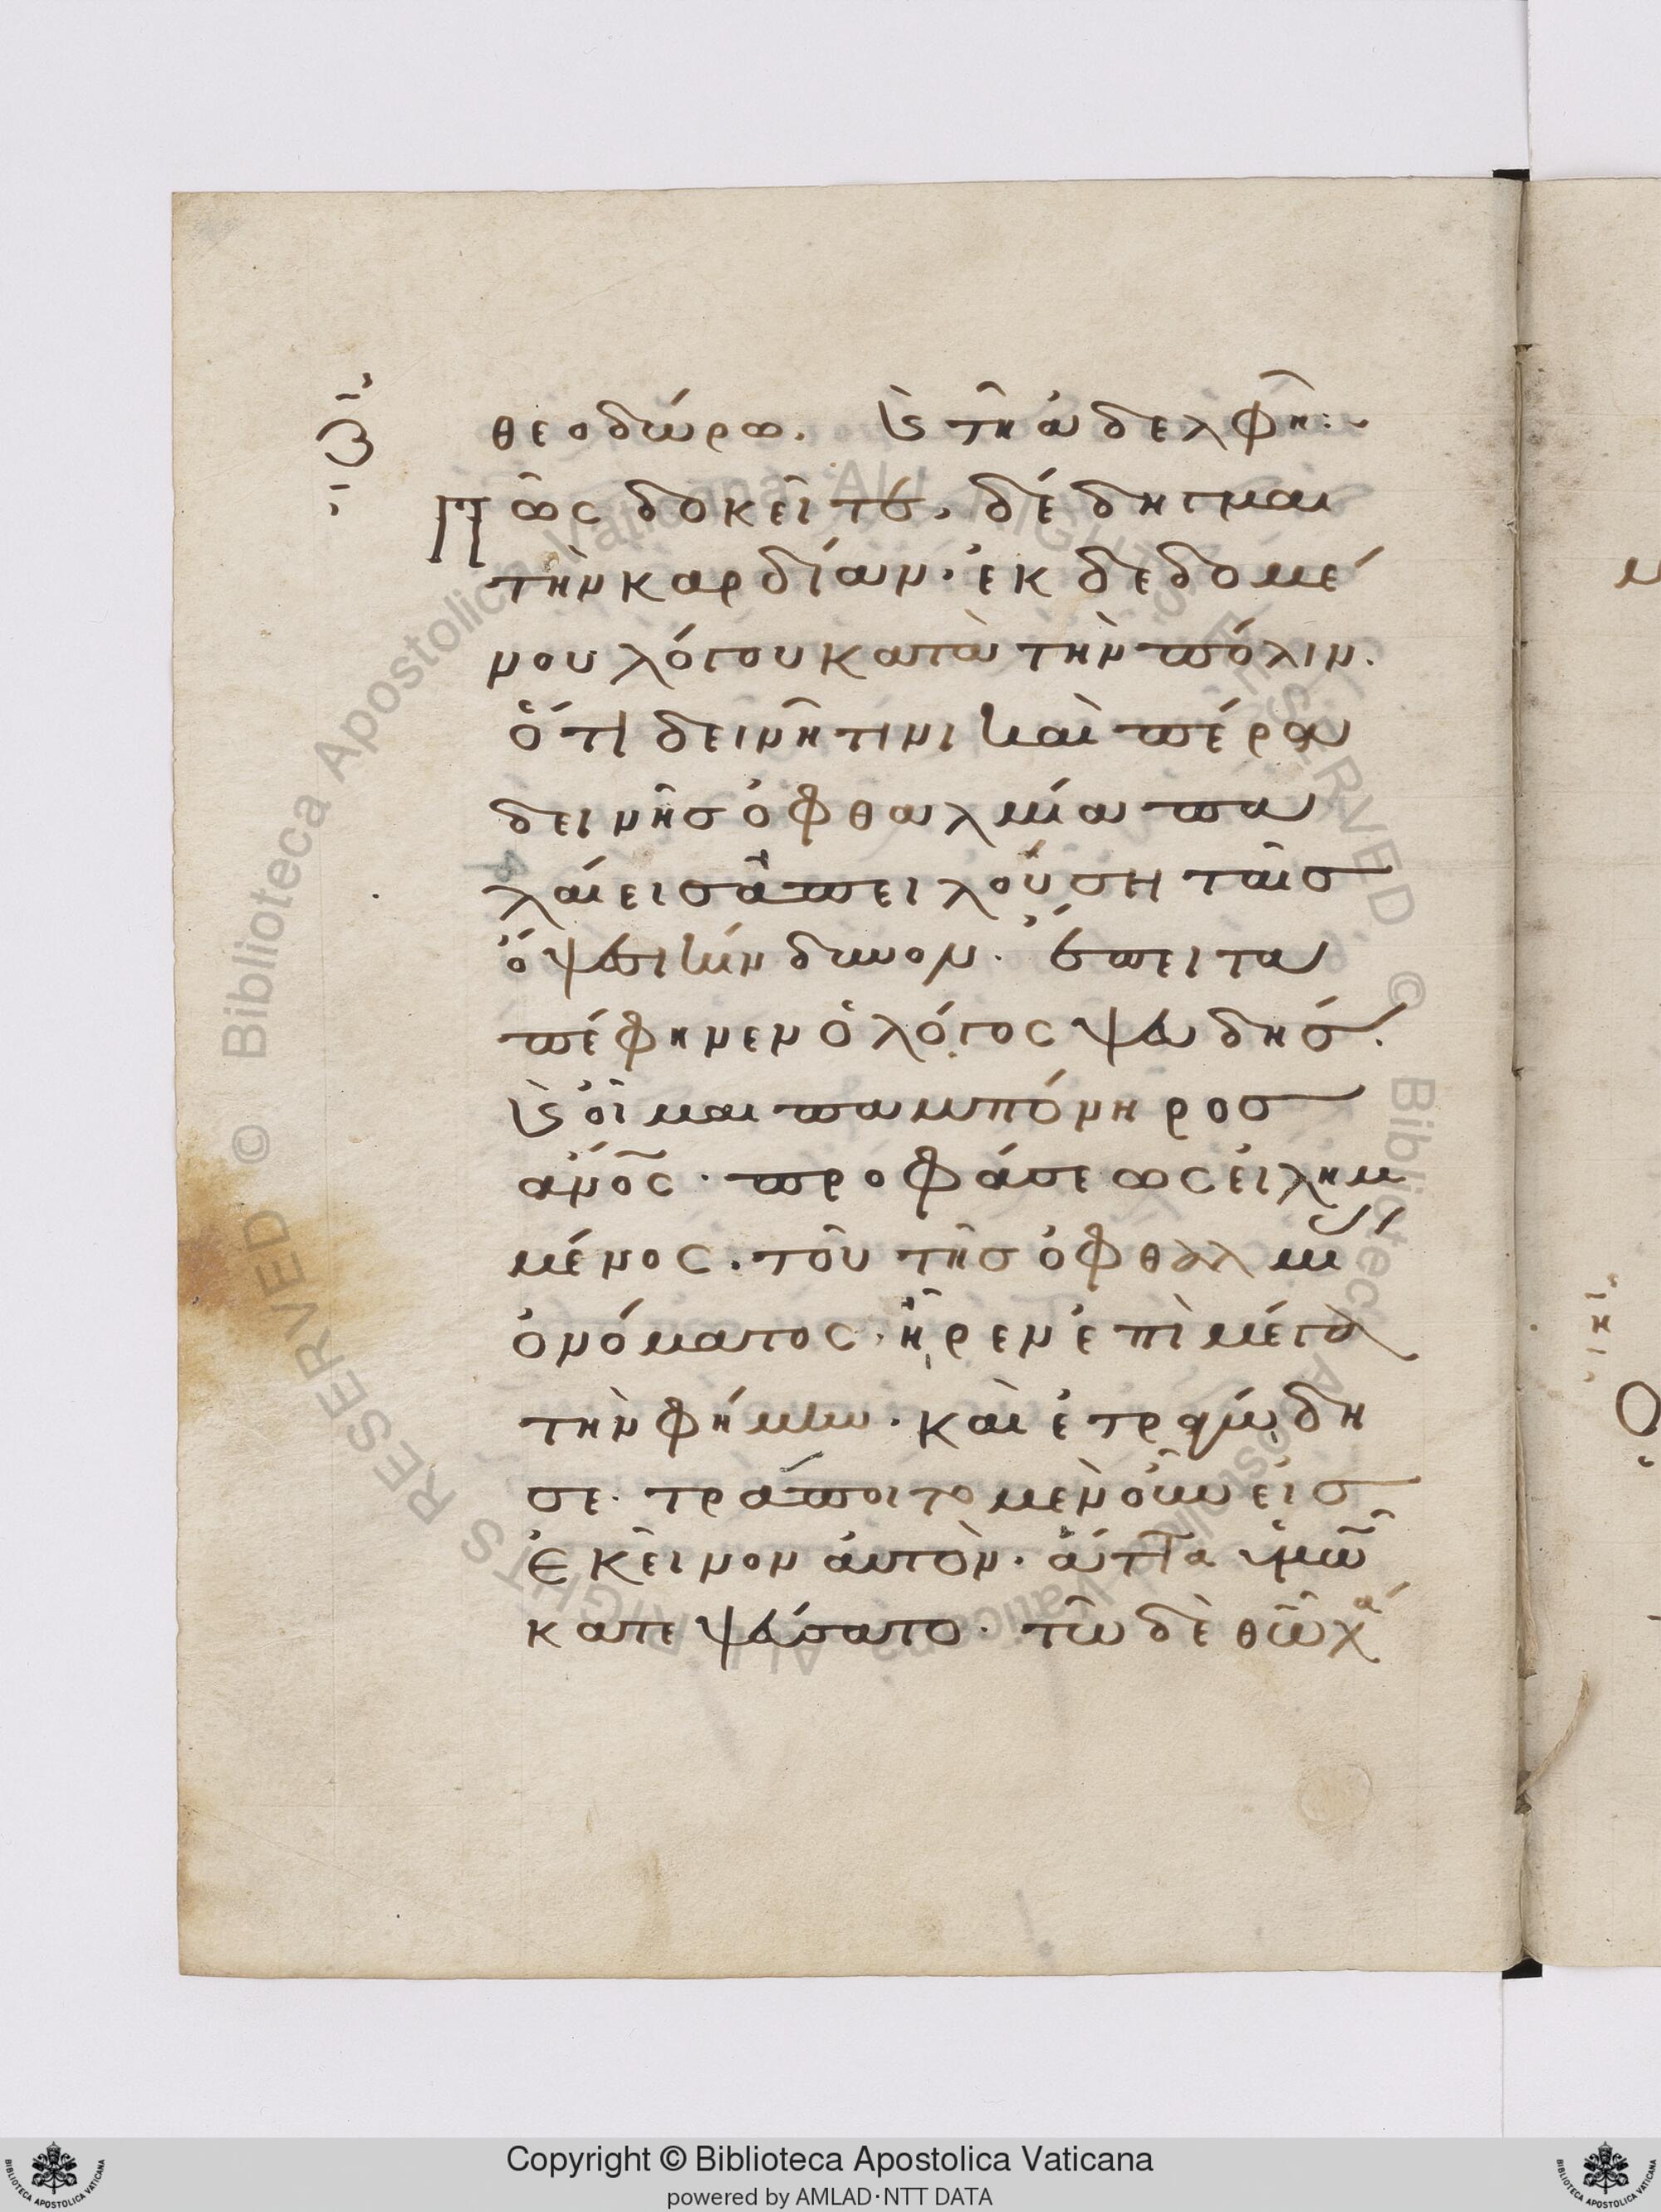 θεοδώρω. καὶ τῆ ἀδελφῆ:
Πῶς δοκεῖτε, δέδηγμαι
τὴν καρδίαν· ἐκδεδομέ
νου λόγου κατὰ τὴν πόλιν.
ὅτι δεινῆ τινι καὶ πέρα
δεινῆς ὀφθαλμία πα
λαίεις ἀπειλούση ταῖς
ὄψεσι κίνδυνον. ἔπειτα
πέφηνεν ὁ λόγος ψευδής.
καὶ οἶμαι παμπόνηρος
ἄνος· προφάσεως εἰλημ
μένος. τοῦ τῆς ὀφθαλμίας
ὀνόματος· ἦρεν ἐπὶ μέγα
τὴν φήμην. καὶ ἐτραγώδη
σε. τράποιτο μὲν οὖν εἰς
ἐκεῖνον αὐτὸν. ἅττα ὑμῶν
κατεψεύσατο. τῶ δὲ θῶ χά